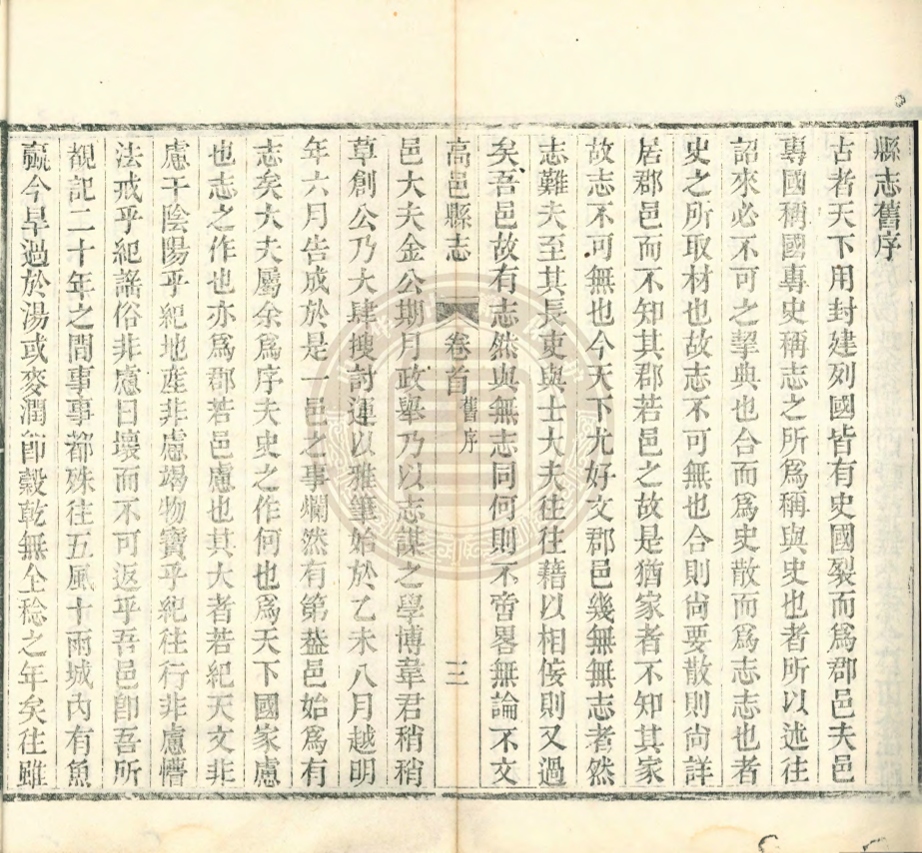 縣志舊序
古者天下用封建列國皆有史國裂而爲郡邑夫邑
專國稱國專史稱志之所爲稱與史也者所以述往
詔來必不可之挈典也合而爲史散而爲志志也者
史之所取材也故志不可無也合則尙要散則尙詳
居郡邑而不知其郡若邑之故是猶家者不知其家
故志不可無也今天下尤好文郡邑幾無無志者然
志難夫至其長吏與士大夫往往藉以相侫則又過
矣吾邑故有志然與無志同何則不啻畧無論不文
高邑縣志
卷首
舊序
三
邑大夫金公期月政舉乃以志謀之學博韋君稍稍
草創公乃大肆搜討運以雅筆始於乙未八月越明
年六月告成於是一邑之事爛然有第葢邑始爲有
志矣大夫屬余爲序夫史之作何也爲天下國家慮
也志之作也亦爲郡若邑慮也其大者若紀天文非
慮干陰陽乎紀地產非慮竭物寶乎紀往行非慮懵
法戒乎紀謠俗非慮日壞而不可返乎吾邑卽吾所
覩記二十年之間事事都殊往五風十雨城內有魚
蠃今旱過於湯或麥潤卽穀乾無全稔之年矣往雖